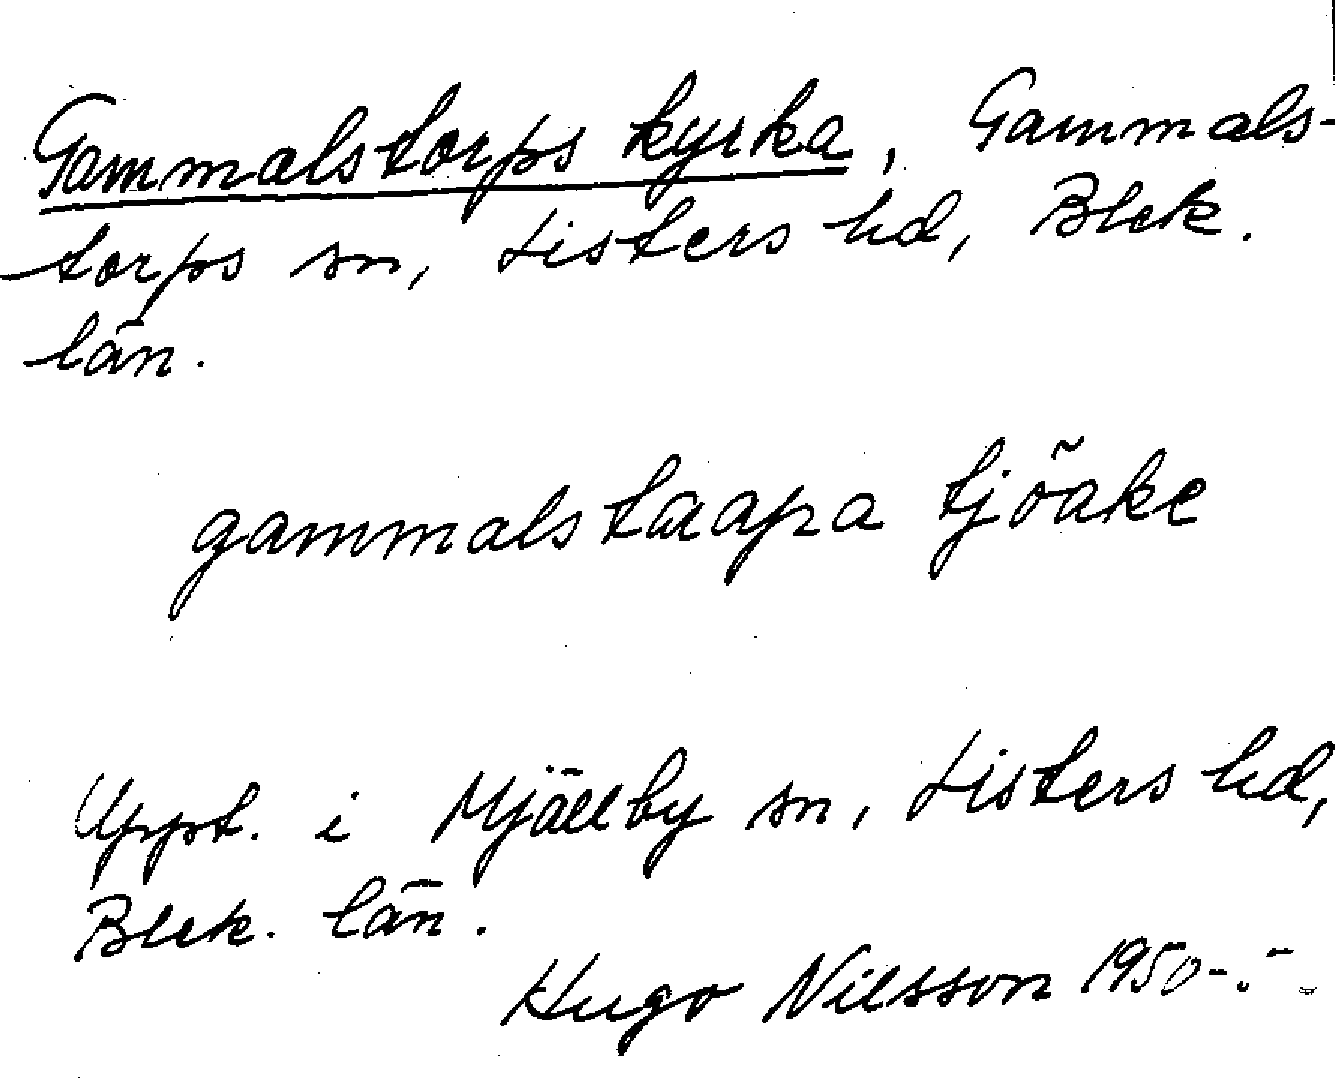 Gammalstorps kyrka, Gammals-
torps sn, Listers hd, Blek.
län.
gammalstaapa tjöake
Uppt. i Mjällby sn, Listers hd,
Blek. län.
Hugo Nilsson 1950-